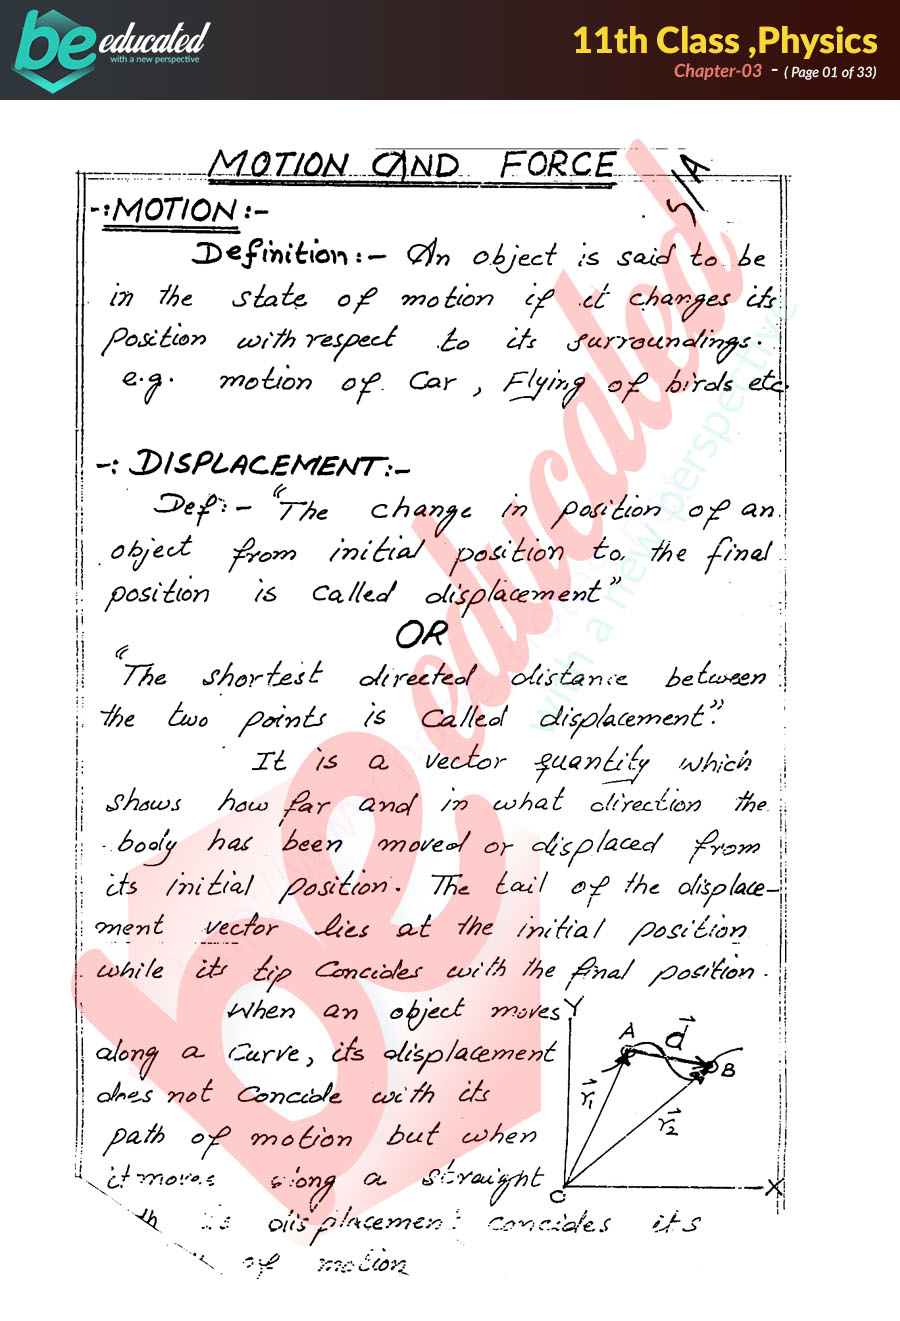 be educated
with a new perspective
11th Class ,Physics
Chapter-03 - ( Page 01 of 33)
MOTION AND FORCE
S/A
-: MOTION :-
Definition :- An object is said to be
in the state of motion if it changes its
Position with respect to its surroundings.
e.g. motion of Car , Flying of birds etc.
-: DISPLACEMENT :-
Def :- "The change in position of an
object from initial position to the final
position is called displacement"
OR
"The shortest directed distance between
the two points is called displacement".
It is a vector quantity which
shows how far and in what direction the
body has been moved or displaced from
its initial position. The tail of the displace-
ment vector lies at the initial position
while its tip Concides with the final position.
When an object moves
along a Curve, its displacement
does not Concide with its
path of motion but when
it moves along a straight
displacement concides its
of motion
Y
A
d
B
r1
r2
O
X
be educated
with a new perspective